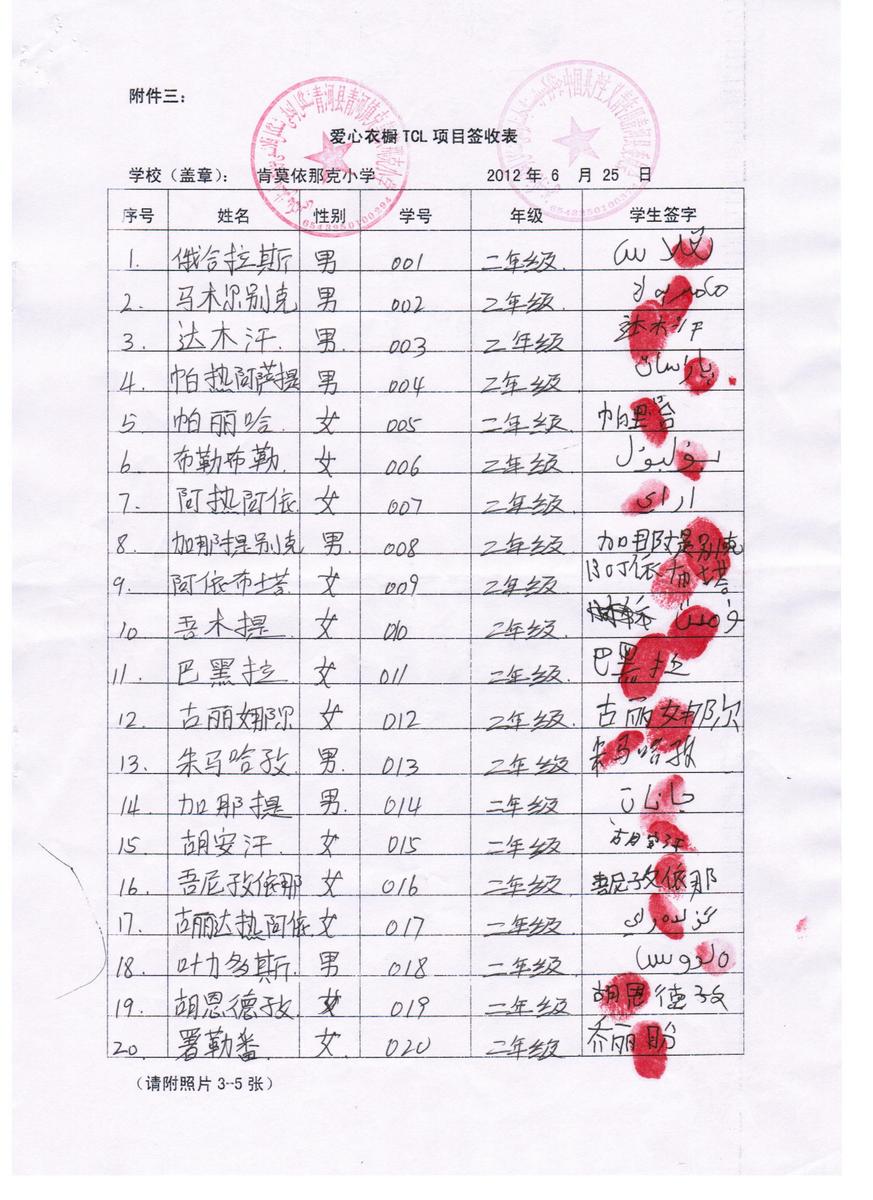 附件三：
爱心衣橱TCL项目签收表
学校（盖章）： 肯莫依那克小学 2012年 6 月 25 日
序号 姓名 性别 学号 年级 学生签字
1. 俄合拉斯 男 001 二年级.
2. 马木尔别克 男 002 二年级.
3. 达木汗. 男. 003 二年级 达木汗
4. 帕热阿萨提 男 004 二年级. پارسات
5 帕丽哈. 女 005 二年级. 帕里哈
6 布勒布勒. 女 006 二年级.
7. 阿热阿依. 女 007 二年级. اراي
8. 加那提别克 男. 008 二年级. 加那提别克
9. 阿依布塔 女 009 二年级. 阿依布塔
10 吾木提. 女 010 二年级.
11. 巴黑拉. 女 011 二年级. 巴黑拉
12 古丽娜尔 女 012 二年级. 古丽娜尔
13. 朱马哈孜. 男. 013 二年级 朱马哈孜
14. 加那提 男. 014 二年级.
15. 胡安汗. 女 015 二年级. 胡安汗
16. 吾尼孜依那 女 016 二年级. 吾尼孜依那
17. 古丽达热阿依 女 017 二年级.
18. 叶力多斯. 男 018 二年级.
19. 胡恩德孜. 女 019 二年级. 胡恩德孜
20. 署勒番. 女. 020 二年级. 乔丽盼
（请附照片3-5张）
6543250100294